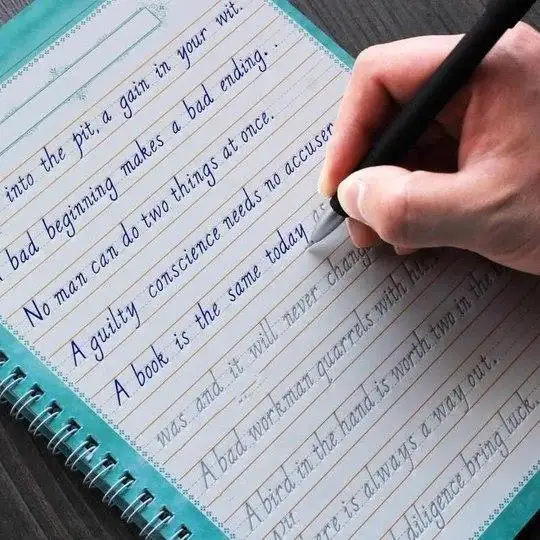 into the pit, a gain in your wit.
bad beginning makes a bad ending.
No man can do two things at once.
A guilty conscience needs no accuser
A book is the same today as
was and it will never chang
A bad workman quarrels with his
A bird in the hand is worth two in the
is always a way out.
diligence bring luck.